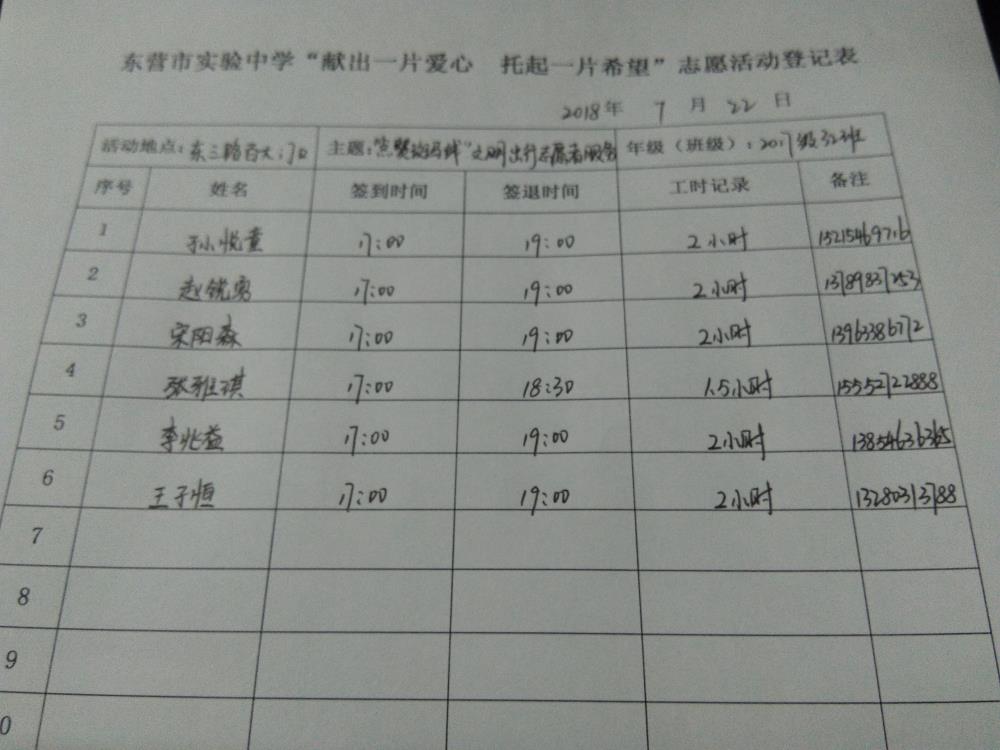 东营市实验中学“献出一片爱心 托起一片希望”志愿活动登记表
2018年 7 月 22 日
活动地点:东三路百大门口 主题:“ 斑马线”文明出行志愿者服务 年级（班级）:2017级32班
序号 姓名 签到时间 签退时间 工时记录 备注
1 孙悦童 17:00 19:00 2小时 15215469716
2 赵锐勇 17:00 19:00 2小时 13789837253
3 宋阳森 17:00 19:00 2小时 13963386772
4 张雅琪 17:00 18:30 1.5小时 15552722888
5 李兆益 17:00 19:00 2小时 13854636365
6 王子恒 17:00 19:00 2小时 13280313788
7
8
9
0